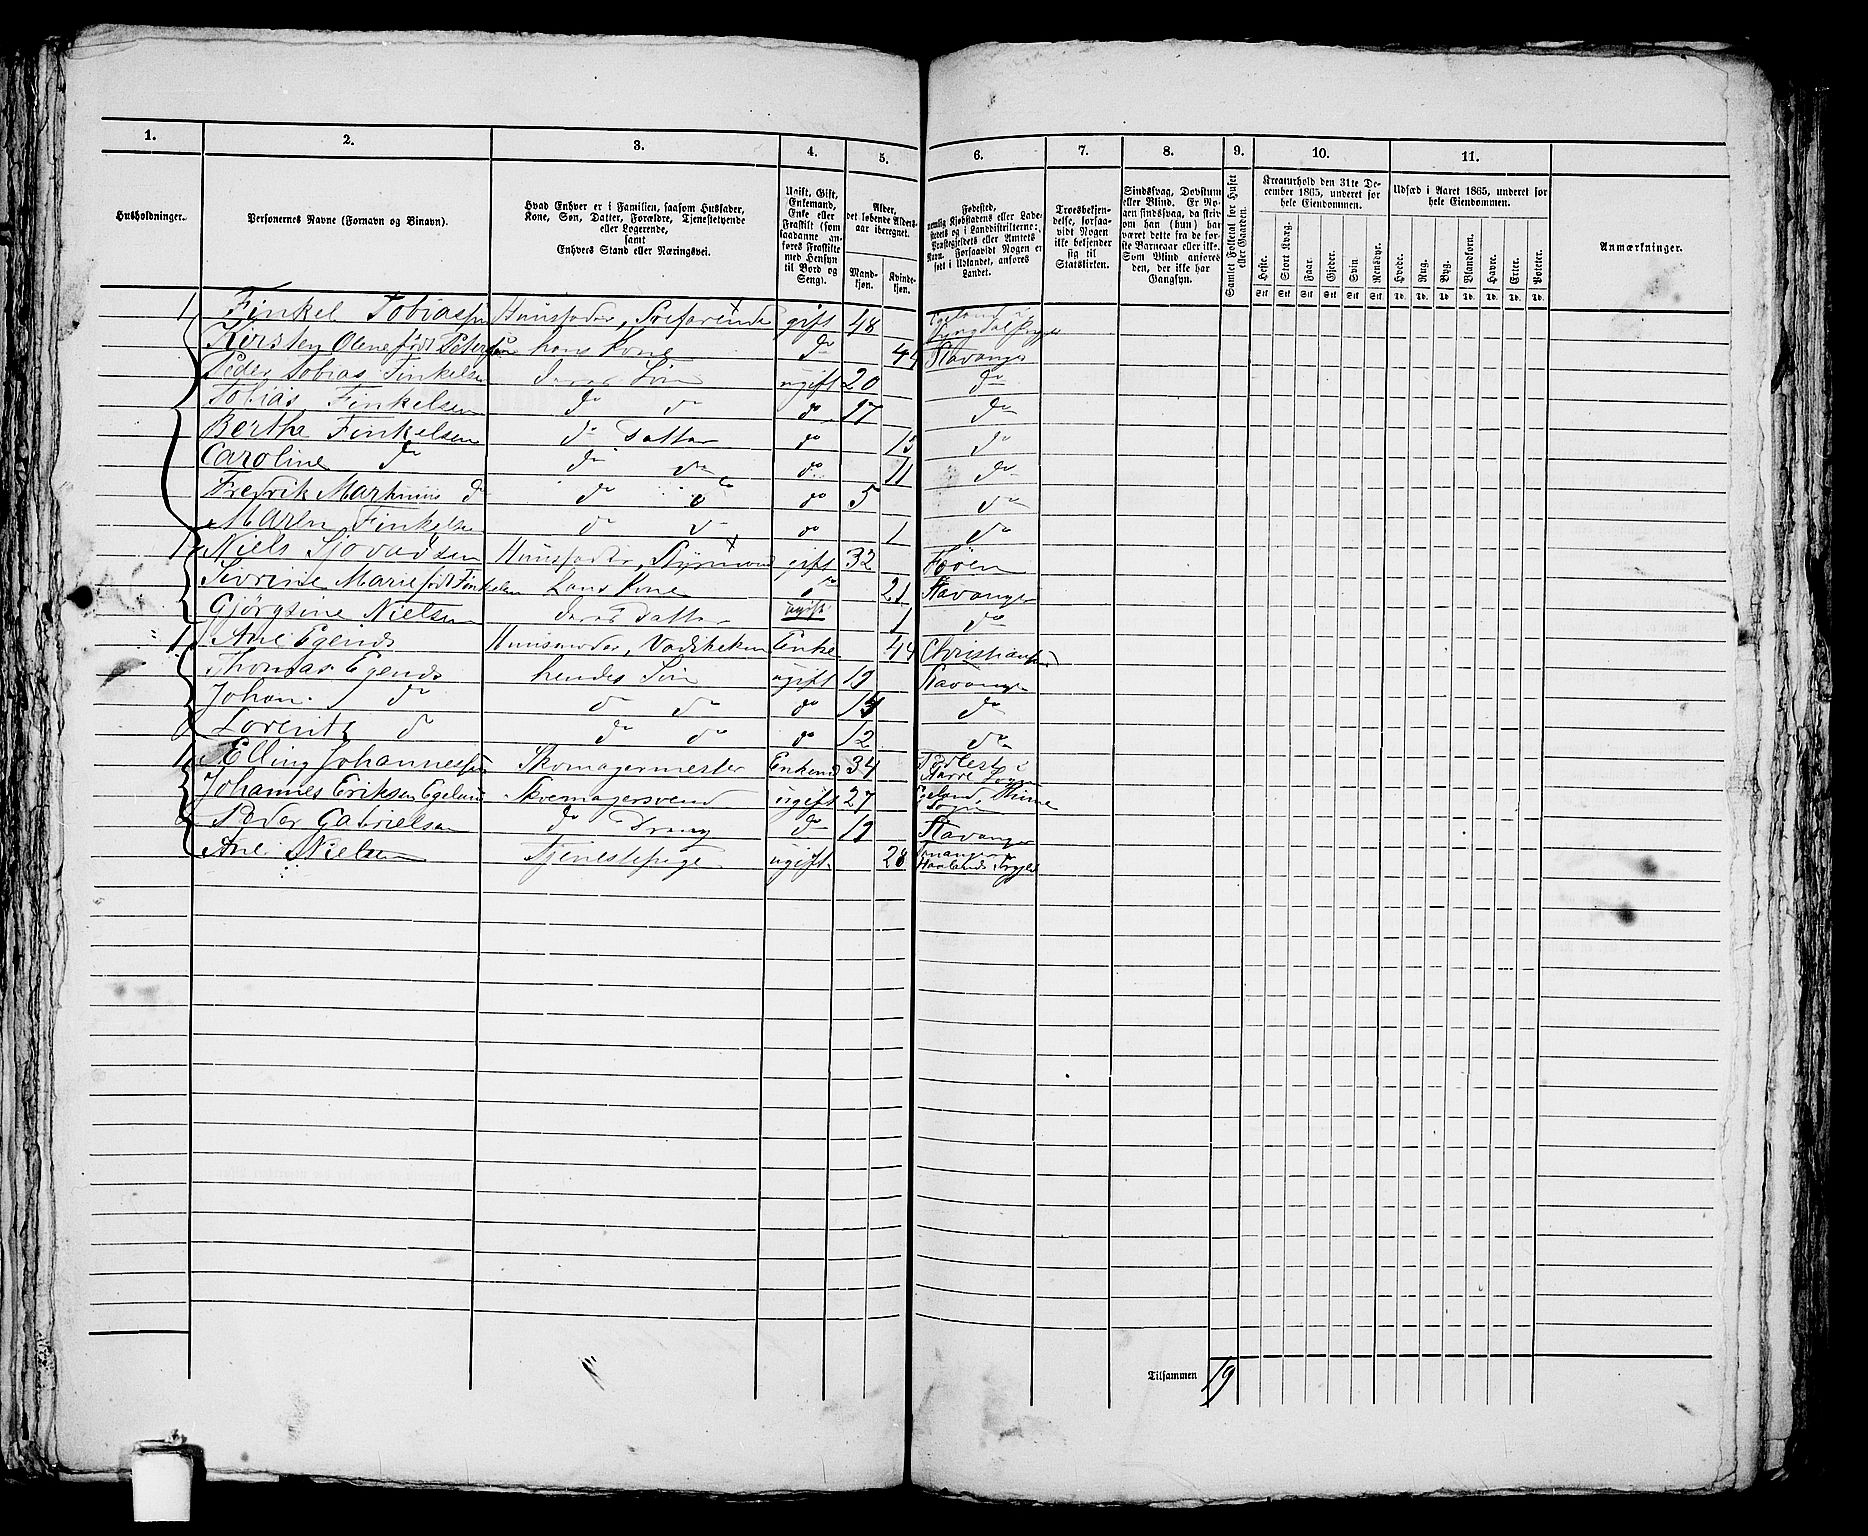 1. 2. 3. 4. 5. 6. 7. 8. 9. 10. 11.
Husholdninger.
Personernes Navne (Fornavn og Binavn).
Hvad Enhver er i Familien, saasom Husfader, Kone, Søn, Datter, Forældre, Tjenestetyende eller Logerende, samt Enhvers Stand eller Næringsvei.
Ugift, Gift, Enkemand, Enke eller Fraskilt (som saadanne anføres Fraskilte med Hensyn til Bord og Seng).
Alder, det løbende Aldersaar iberegnet.
Mandkjøn. Kvindekjøn.
Fødested, nemlig Kjøbstadens eller Ladestedets og i Landdistrikterne: Præstegjeldets eller Amtets Navn. Forsaavidt Nogen er født i Udlandet, anføres Landet.
Troesbekjendelse, forsaavidt Nogen ikke bekjender sig til Statskirken.
Sindssvag, Døvstum eller Blind. Er Nogen sindssvag, da skrives om han (hun) har været dette fra de første Barneaar eller ikke. Som Blind anføres den, der ikke har Gangsyn.
Samlet Folketal for Huset eller Gaarden.
Kreaturhold den 31te December 1865, underet for hele Eiendommen.
Heste. Stort Kvæg. Faar. Gjeder. Svin. Rensdyr.
Stk Stk Stk Stk Stk Stk
Udsæd i Aaret 1865, underet for hele Eiendommen.
Hvede. Rug. Byg. Blandkorn. Havre. Erter. Poteter.
Td. Td. Td. Td. Td. Td. Td.
Anmærkninger.
1 Finkel Tobiassen Huusfader, Søefarende gift 48
Kirsten Olene født Petersen hans Kone do 44 Stavanger
Peder Tobias Finkelsen deres Søn ugift 20 do
Tobias Finkelsen do do do 17 do
Berthe Finkelsen do Datter do 15 do
Caroline do do do do 11 do
Fredrik Martinius do do do 5 do
Maren Finkelsen do do do 1 do
1 Niels Huusfader, Styrmand gift 32
Sivrine Marie født Finkelsen hans Kone do 21 Stavanger
Gjørgsine Nielsen deres Datter ugift 1 do
1 Ane Egends Huusmoder, Enke 44 Christiansand
Thomas Egends hendes Søn ugift 19 Stavanger
Johan do do do do do
Lorentz do do do do 12 do
1 Elling Johannessen Skomagermester Enkemd 34
Johannes Eriksen Egeland Skomagersvend ugift 27 Egeland, Sogn
Peder Gabrielsen do Dreng do 19 Stavanger
Ane Nielsen Tjenestepige ugift 28 Haalands Prgjeld
Tilsammen 19